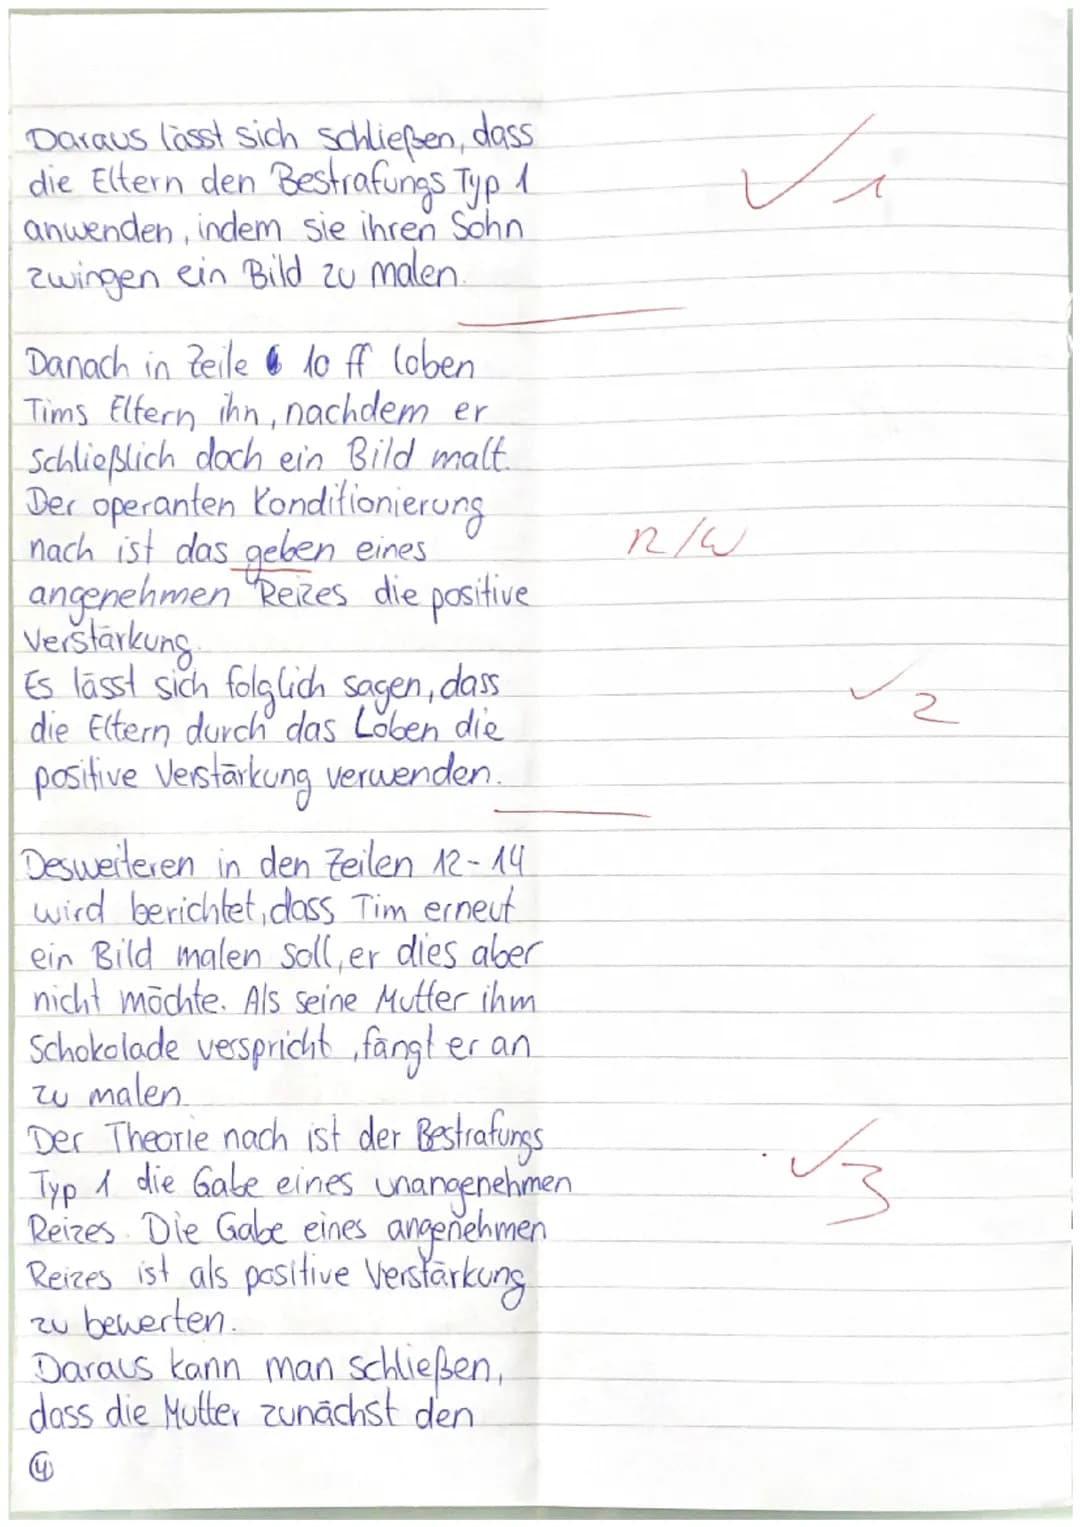 Daraus lässt sich schließen, dass
die Eltern den Bestrafungs Typ 1
anwenden, indem sie ihren Sohn
zwingen ein Bild zu malen.
✓ 1
Danach in Zeile 10 ff loben
Tims Eltern ihn, nachdem er
schließlich doch ein Bild malt.
Der operanten Konditionierung
nach ist das geben eines
R/W
angenehmen Reizes die positive
Verstärkung.
Es lässt sich folglich sagen, dass
die Eltern durch das Loben die
✓ 2
positive Verstärkung verwenden.
Desweiteren in den Zeilen 12-14
wird berichtet, dass Tim erneut
ein Bild malen soll, er dies aber
nicht möchte. Als seine Mutter ihm
Schokolade verspricht, fängt er an
zu malen.
Der Theorie nach ist der Bestrafungs
Typ 1 die Gabe eines unangenehmen
✓ 3
Reizes. Die Gabe eines angenehmen
Reizes ist als positive Verstärkung
zu bewerten.
Daraus kann man schließen,
dass die Mutter zunächst den
4